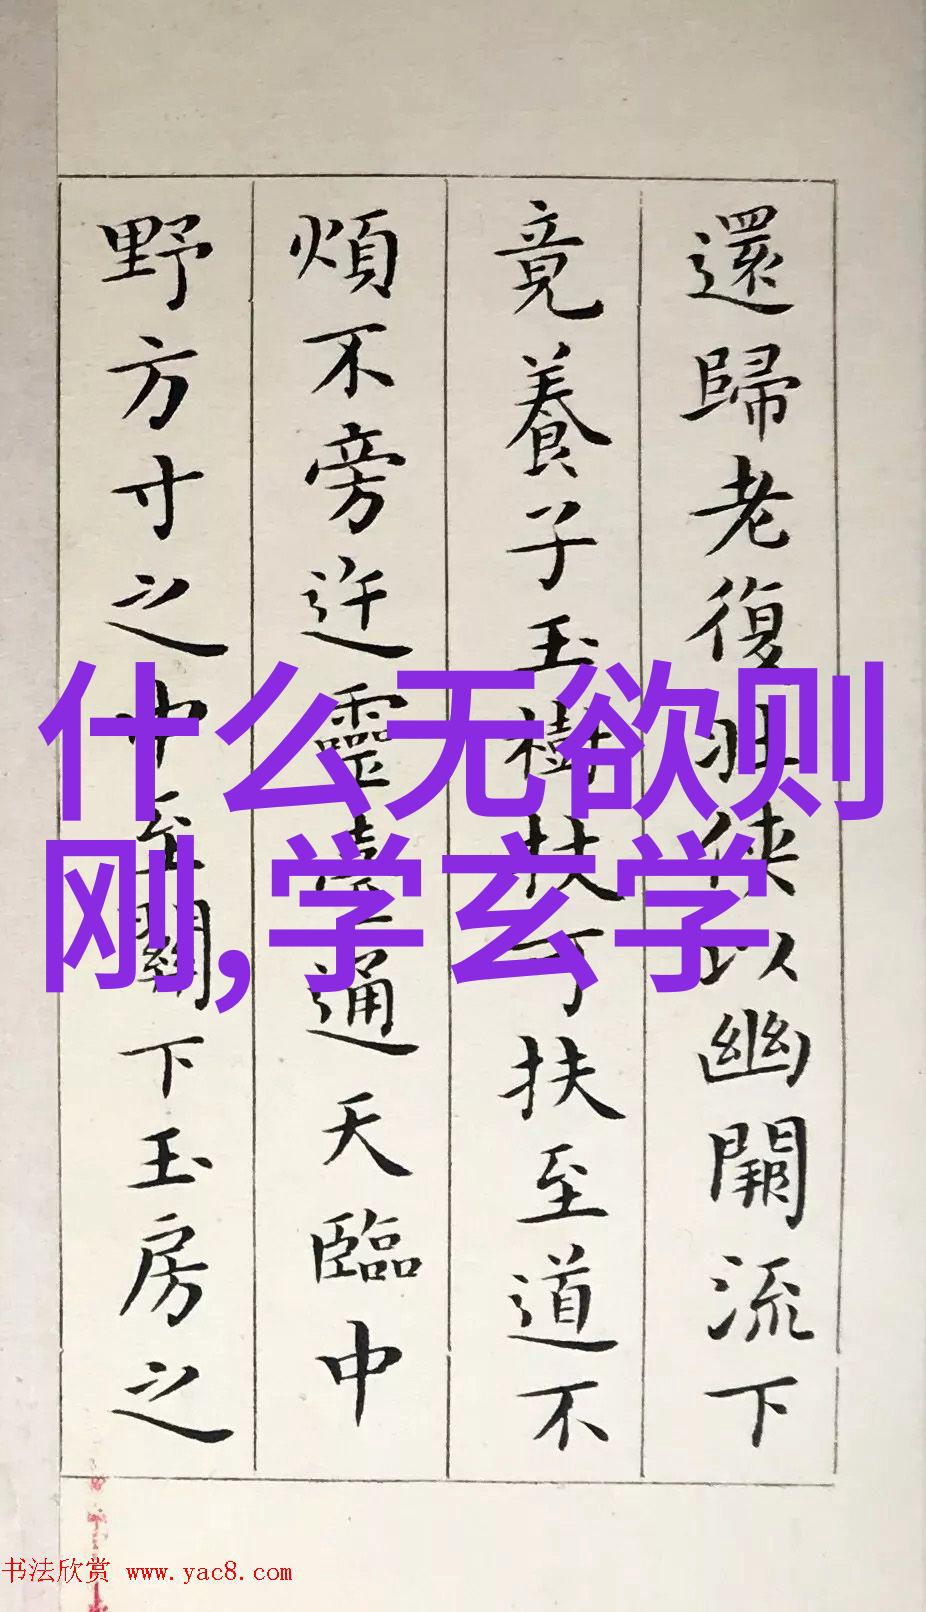 還歸老復壯俠以幽闕流下
竟養子玉樹扶可扶至道不
煩不旁迕靈臺通天臨中
野方寸之中至關下玉房之
什么无欲则
刚,学玄学
书法欣赏 www.yac8.com